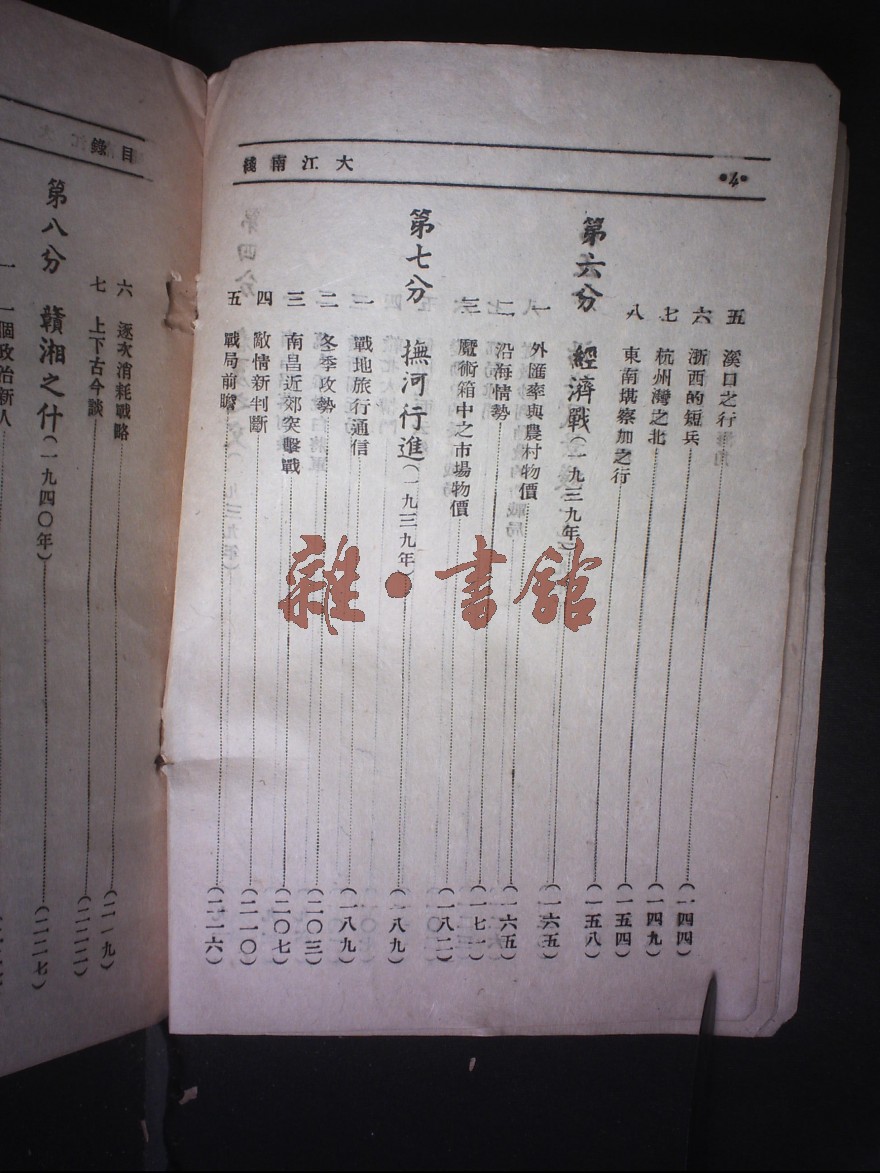 •4•
大江南綫
五 溪口之行 (一四四)
六 浙西的短兵 (一四九)
七 杭州灣之北 (一五四)
八 東南堪察加之行 (一五八)
第六分 經濟戰(一九三九年) (一六五)
一 外匯率與農村物價 (一六五)
二 沿海情勢 (一七一)
三 魔術箱中之市場物價 (一八二)
第七分 撫河行進(一九三九年) (一八九)
一 戰地旅行通信 (一八九)
二 冬季攻勢 (二〇三)
三 南昌近郊突擊戰 (二〇七)
四 敵情新判斷 (二一〇)
五 戰局前瞻 (二一六)
目錄
六 逐次消耗戰略 (二一九)
七 上下古今談 (二二二)
第八分 贛湘之什(一九四〇年) (二二七)
一 一個政治新人
雜•書館